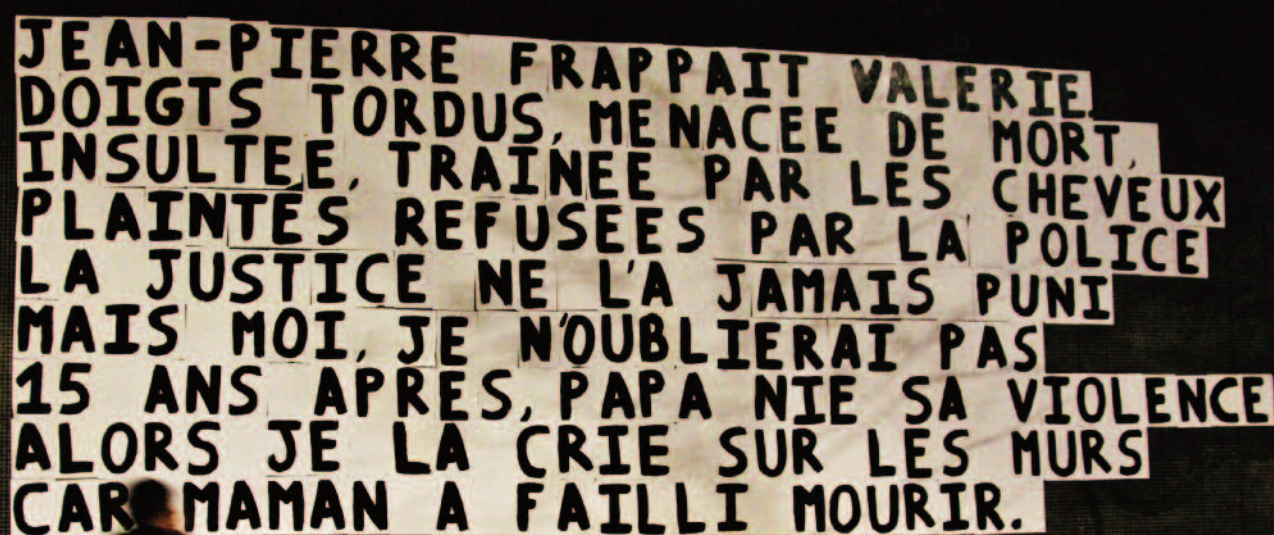 JEAN-PIERRE FRAPPAIT VALERIE.
DOIGTS TORDUS, MENACEE DE MORT,
INSULTEE, TRAINEE PAR LES CHEVEUX
PLAINTES REFUSEES PAR LA POLICE
LA JUSTICE NE L'A JAMAIS PUNI
MAIS MOI, JE N'OUBLIERAI PAS
15 ANS APRES, PAPA NIE SA VIOLENCE
ALORS JE LA CRIE SUR LES MURS
CAR MAMAN A FAILLI MOURIR.